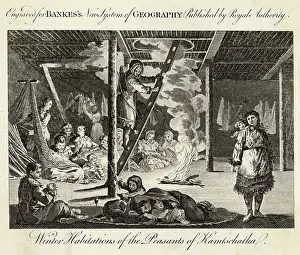 Engraved for BANKES's New System of GEOGRAPHY Published by Royal Authority.
Winter Habitations of the Peasants of Kamtschatka.